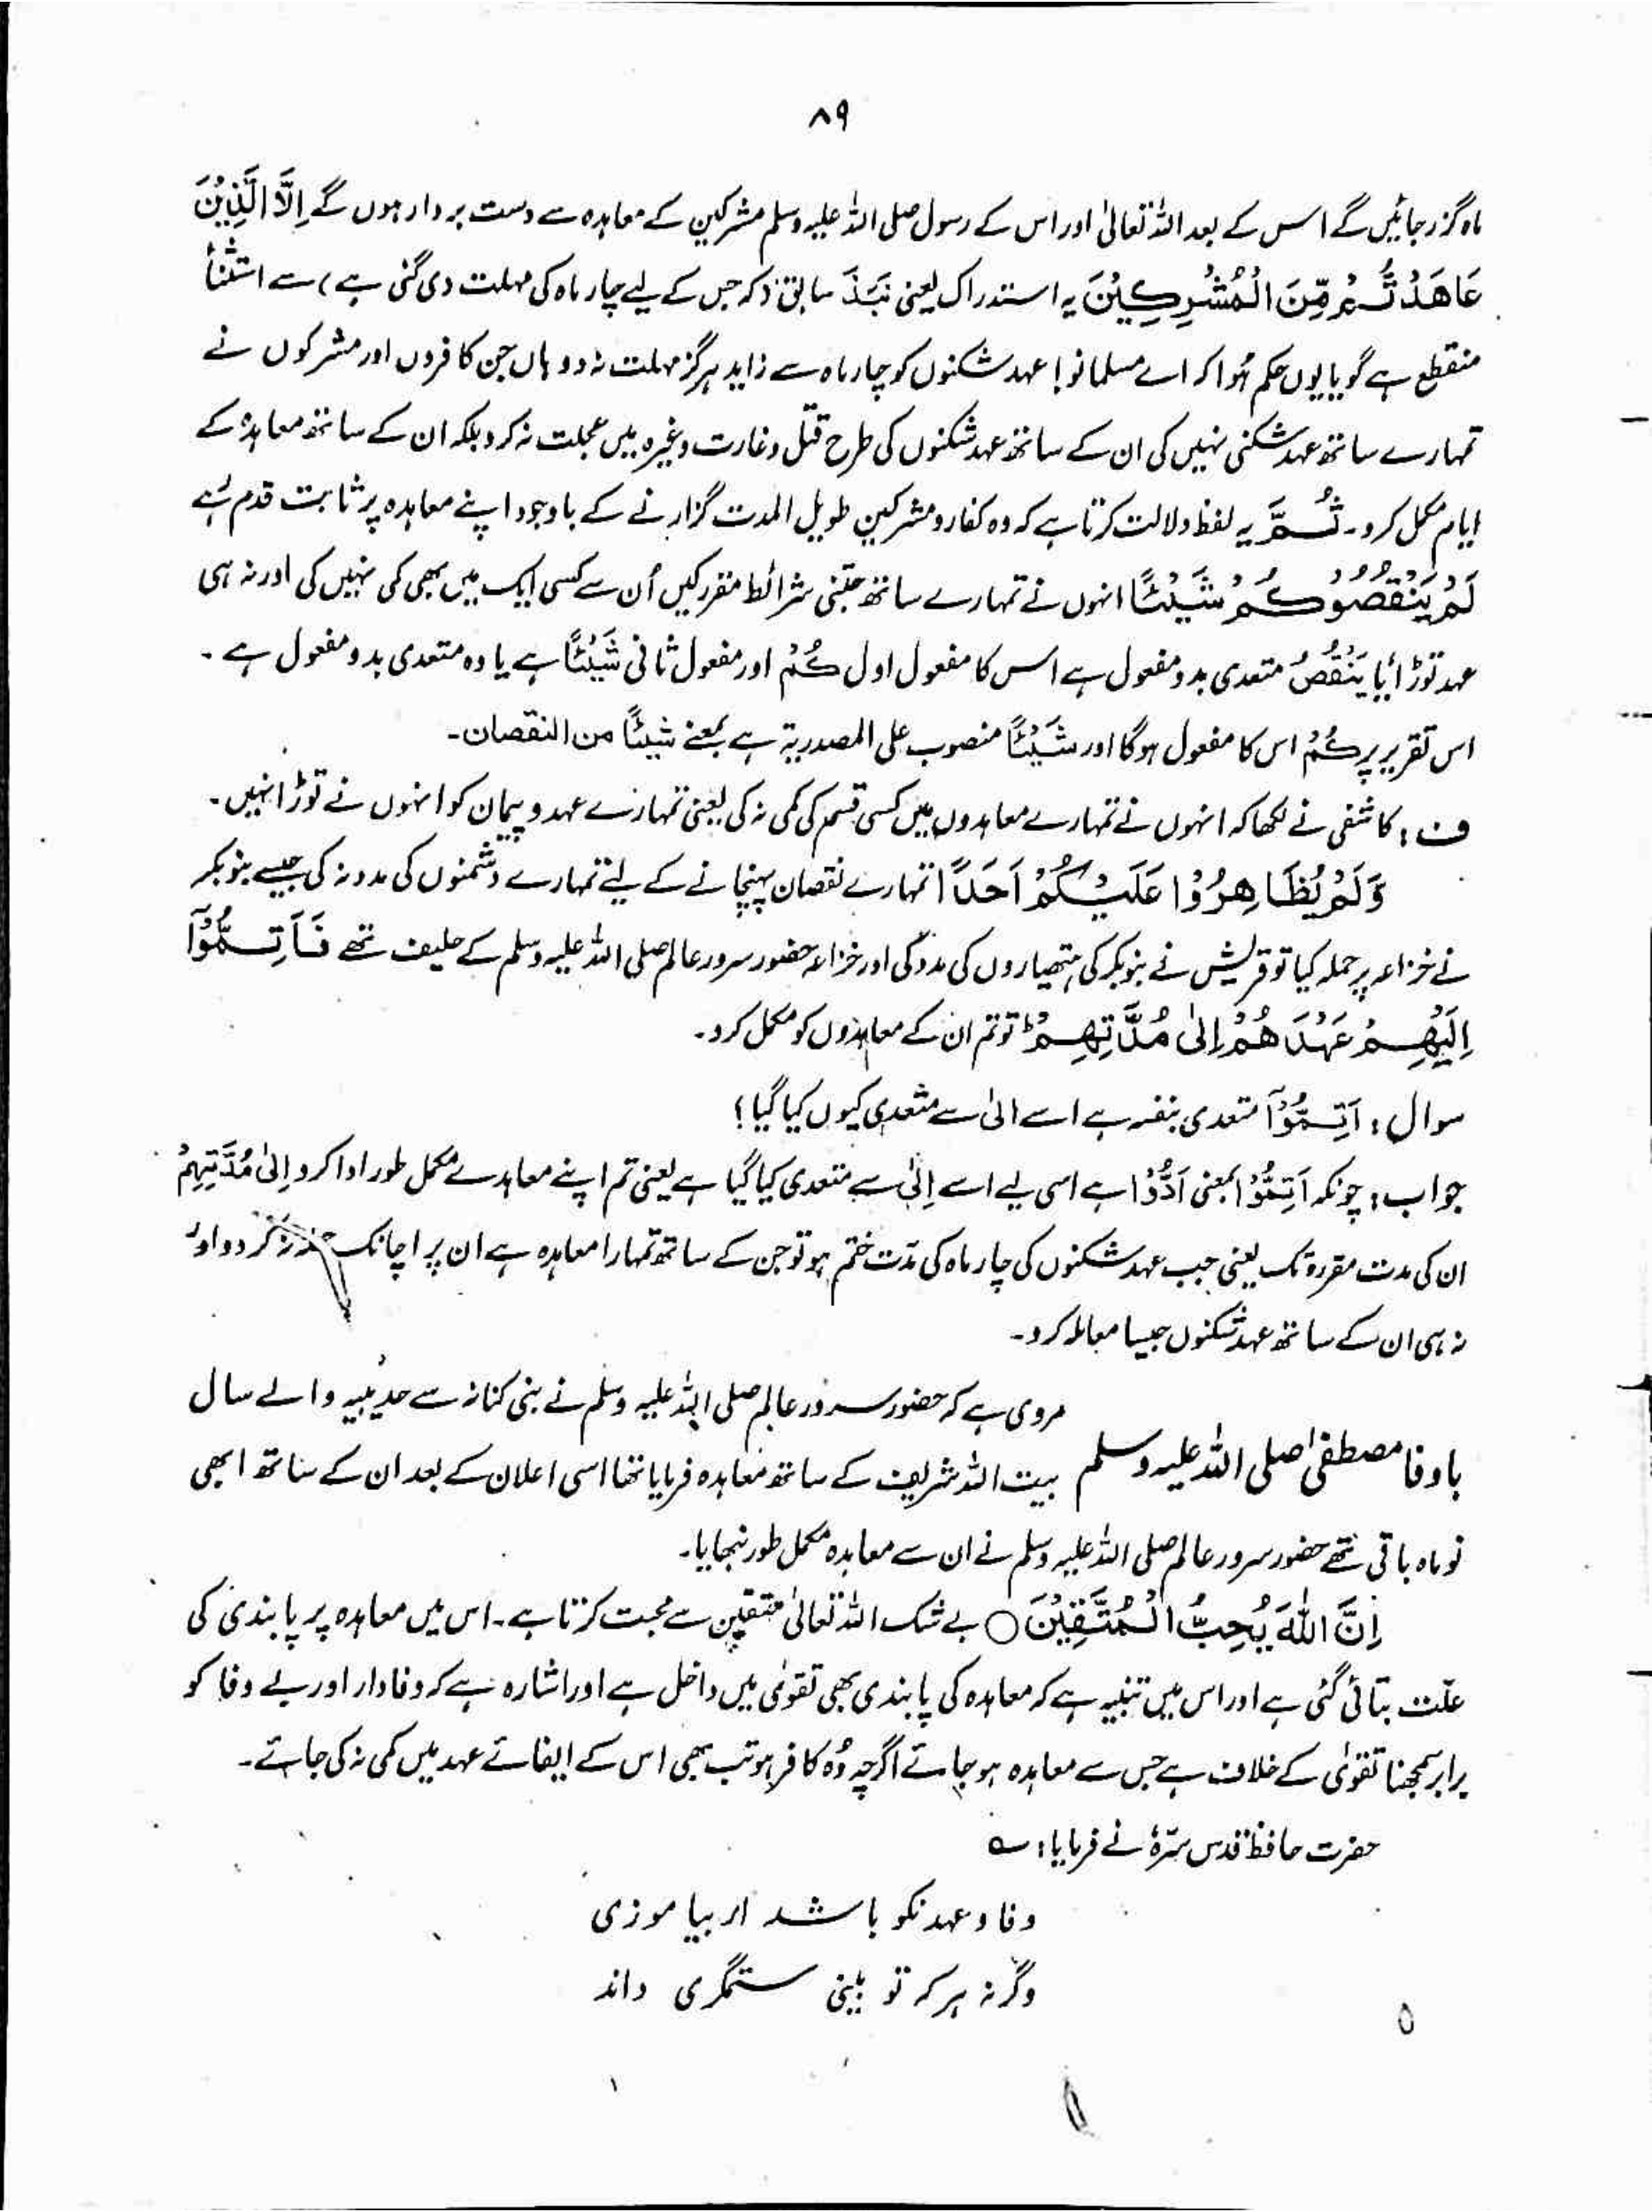 ۸۹
ماہ گزر جائیں گے اس کے بعد اللہ تعالیٰ اور اس کے رسول صلی اللہ علیہ وسلم مشرکین کے معاہدہ سے دست بردار ہوں گے اِلَّا الَّذِيْنَ
عَاهَدْتُّمْ مِّنَ الْمُشْرِكِيْنَ یہ استدراک یعنی نَبَذَ سابق (کہ جس کے لیے چار ماہ کی مہلت دی گئی ہے) سے استثنأ
منقطع ہے گویا یوں حکم ہُوا کہ اے مسلمانو! عہد شکنوں کو چار ماہ سے زاید ہرگز مہلت نہ دو ہاں جن کافروں اور مشرکوں نے
تمہارے ساتھ عہد شکنی نہیں کی ان کے ساتھ عہد شکنوں کی طرح قتل و غارت وغیرہ میں عجلت نہ کرو بلکہ ان کے ساتھ معاہدہ کے
ایام مکمل کرو۔ ثُمَّ یہ لفظ دلالت کرتا ہے کہ وہ کفار و مشرکین طویل المدت گزارنے کے باوجود اپنے معاہدہ پر ثابت قدم رہے
لَمْ يَنْقُصُوْكُمْ شَيْئًا انہوں نے تمہارے ساتھ جتنی شرائط مقرر کیں اُن سے کسی ایک میں بھی کمی نہیں کی اور نہ ہی
عہد توڑا یا يَنْقُصُ متعدی بدو مفعول ہے اس کا مفعول اول كُمْ اور مفعول ثانی شَيْئًا ہے یا وہ متعدی بدو مفعول ہے۔
اس تقریر پر كُمْ اس کا مفعول ہوگا اور شَيْئًا منصوب علی المصدریۃ ہے بمعنے شیئاً من النقصان۔
ف : کاشفی نے لکھا کہ انہوں نے تمہارے معاہدوں میں کسی قسم کی کمی نہ کی یعنی تمہارے عہد و پیمان کو انہوں نے توڑا نہیں۔
وَّلَمْ يُظَاهِرُوْا عَلَيْكُمْ اَحَدًا تمہارے نقصان پہنچانے کے لیے تمہارے دشمنوں کی مدد نہ کی جیسے بنو بکر
نے خزاعہ پر حملہ کیا تو قریش نے بنو بکر کی ہتھیاروں کی مدد کی اور خزاعہ حضور سرور عالم صلی اللہ علیہ وسلم کے حلیف تھے فَاَتِمُّوْٓا
اِلَيْهِمْ عَهْدَهُمْ اِلٰى مُدَّتِهِمْ ؕ تو تم ان کے معاہدوں کو مکمل کرو۔
سوال : اَتِمُّوْٓا متعدی بنفسہ ہے اسے الیٰ سے متعدی کیوں کیا گیا؟
جواب : چونکہ اَتِمُّوْا بمعنی اَدُّوْا ہے اسی لیے اسے اِلیٰ سے متعدی کیا گیا ہے یعنی تم اپنے معاہدے مکمل طور ادا کرو اِلیٰ مُدَّتِہِمْ
ان کی مدت مقررہ تک یعنی جب عہد شکنوں کی چار ماہ کی مدّت ختم ہو تو جن کے ساتھ تمہارا معاہدہ ہے ان پر اچانک نہ کردو اور
نہ ہی ان کے ساتھ عہد شکنوں جیسا معاملہ کرو۔
مروی ہے کہ حضور سرور عالم صلی اللہ علیہ وسلم نے بنی کنانہ سے حدیبیہ والے سال
باوفا مصطفیٰ صلی اللہ علیہ وسلم
بیت اللہ شریف کے ساتھ معاہدہ فرمایا تھا اسی اعلان کے بعد ان کے ساتھ ابھی
نو ماہ باقی تھے حضور سرور عالم صلی اللہ علیہ وسلم نے ان سے معاہدہ مکمل طور نبھایا۔
اِنَّ اللّٰهَ يُحِبُّ الْمُتَّقِيْنَ ○ بے شک اللہ تعالیٰ متقین سے محبت کرتا ہے۔ اس میں معاہدہ پر پابندی کی
علّت بتائی گئی ہے اور اس میں تنبیہ ہے کہ معاہدہ کی پابندی بھی تقویٰ میں داخل ہے اور اشارہ ہے کہ وفادار اور بے وفا کو
برابر سمجھنا تقویٰ کے خلاف ہے جس سے معاہدہ ہو جائے اگرچہ وُہ کافر ہو تب بھی اس کے ایفائے عہد میں کمی نہ کی جائے۔
حضرت حافظ قدس سّرہٗ نے فرمایا : ؎
وفا و عہد نکو باشد ار بیاموزی
وگرنہ ہر کہ تو بینی ستمگری داند